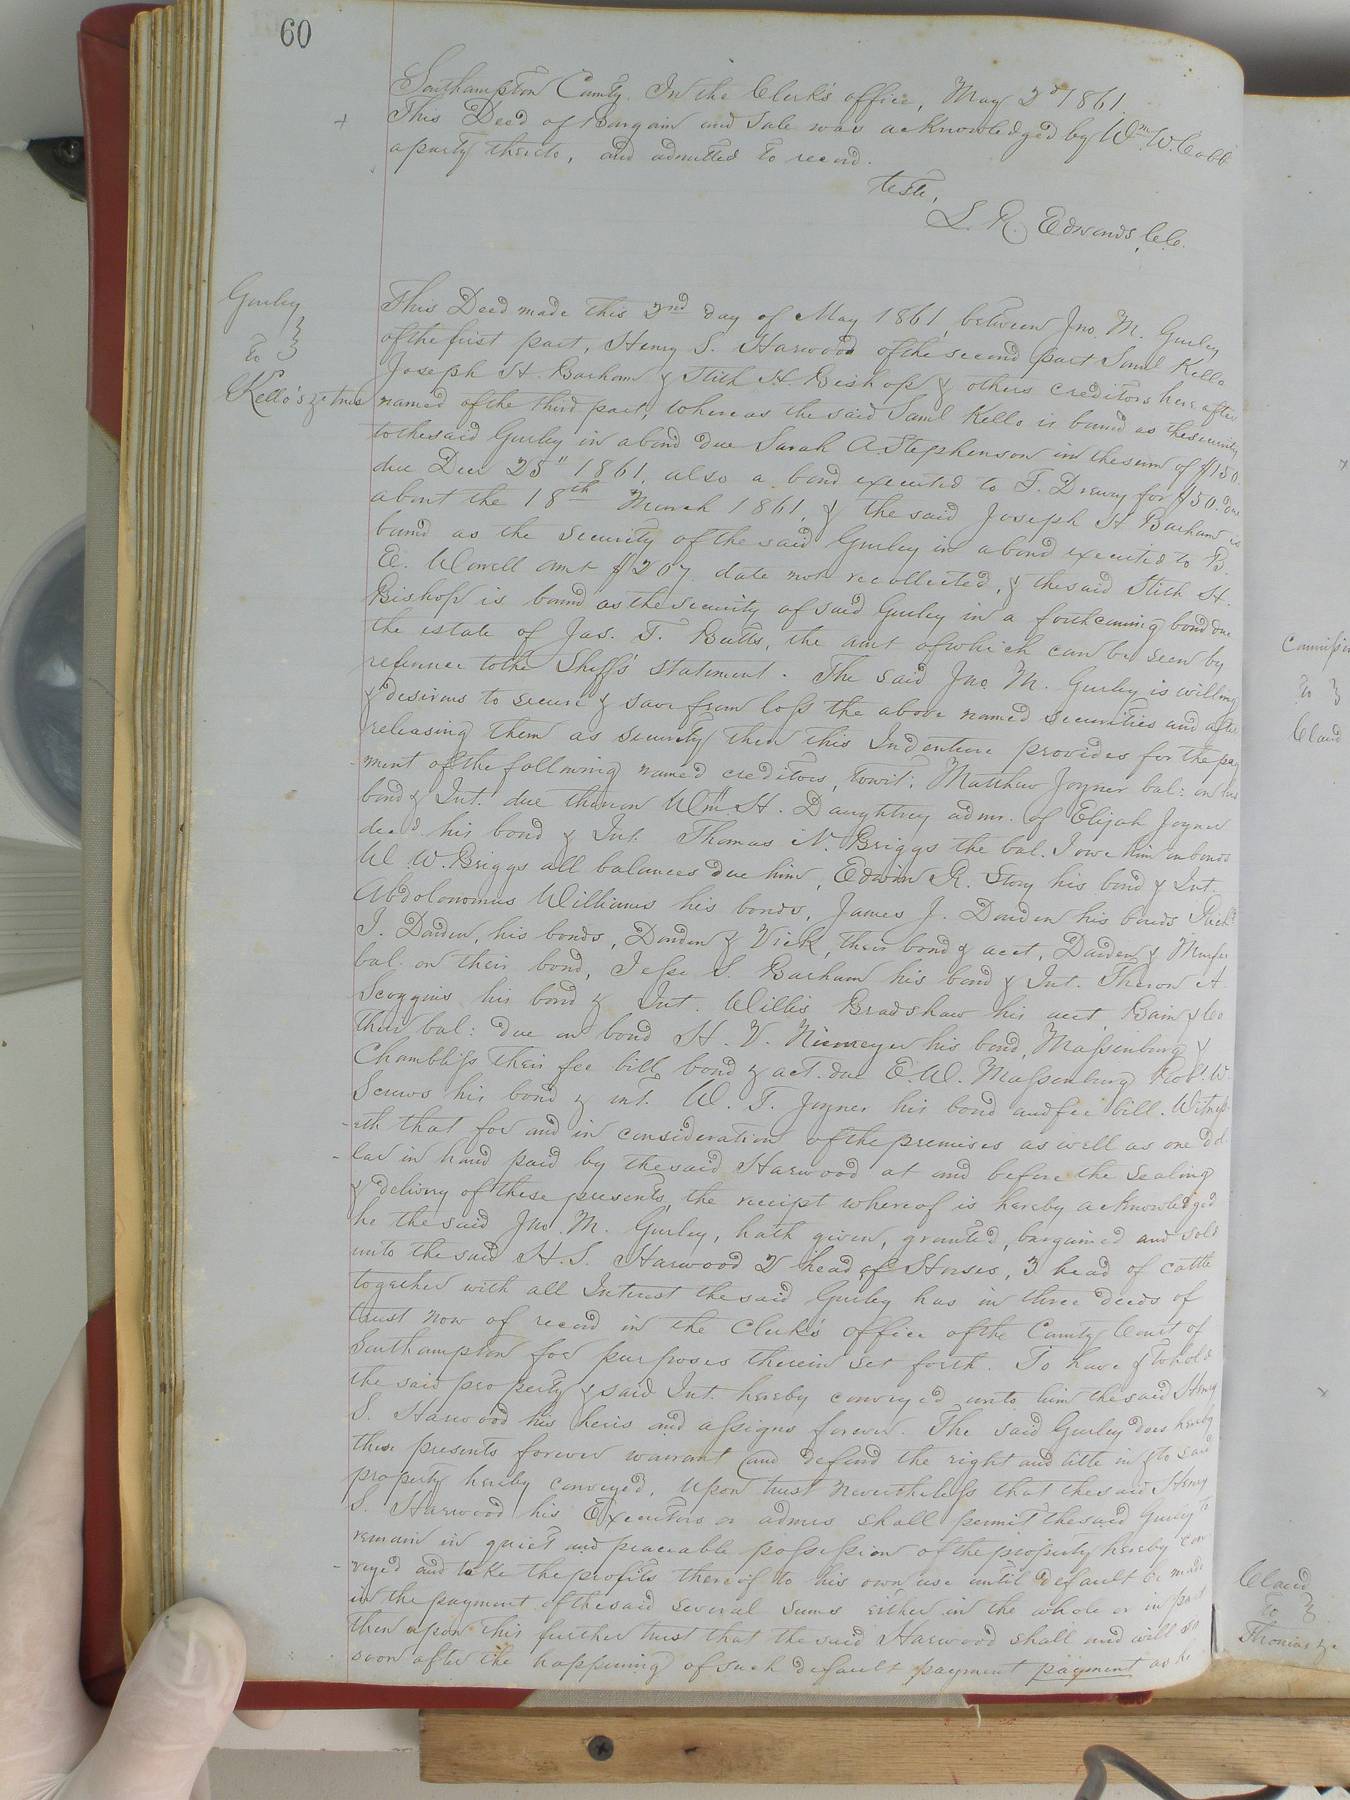 60
Southampton County. In the Clerk's office, May 2d 1861.
This Deed of Bargain and Sale was acknowledged by Wm. W. Cobb
a party thereto, and admitted to record.
teste,
L. R. Edwards, C.C.
Gurley
to
Kello's &c trus
This Deed made this 2nd day of May 1861, between Jno. M. Gurley
of the first part, Henry S. Harwood of the second part Saml Kello
Joseph H. Barham & Stith H. Bishop & others creditors here after
named of the third part, whereas the said Saml Kello is bound as the security
to the said Gurley in a bond due Sarah A. Stephenson in the sum of $150.
due Decr 25" 1861, also a bond executed to T. Drewry for $50. due
about the 18th March 1861, & the said Joseph H Barham is
bound as the security of the said Gurley in a bond executed to B.
E. Worrell amt $207. date not recollected, & the said Stith H.
Bishop is bound as the security of said Gurley in a forthcoming bond due
the estate of Jas. T. Butts, the amt of which can be seen by
refference to the Sheff's statement. The said Jno. M. Gurley is willing
& desirous to secure & save from loss the above named securities and after
releasing them as security then this Indenture provides for the pay
ment of the following named creditors, towit: Matthew Joyner bal: on his
bond & Int. due thereon Wm. H. Daughtrey admr. of Elijah Joyner
decd. his bond & Int. Thomas N. Briggs the bal. I owe him on bonds
W. W. Briggs all balances due him, Edwin R. Story his bond & Int.
Abdolonomus Williams his bonds, James J. Darden his bonds
J. Darden, his bonds, Darden & Vick, their bond & acct, Darden &
bal. on their bond, Jesse S. Barham his bond & Int. Theron A
Scoggins his bond & Int. Willis Bradshaw his acct Bain & Co
their bal: due on bond H. V. Niemeyer his bond, Massenburg &
Chambliss their fee bill, bond & act. due E. W. Massenburg Robt. W.
Screws his bond & int. W. T. Joyner his bond and fee bill. Witness-
eth that for and in consideration of the premises as well as one dol
lar in hand paid by the said Harwood at and before the sealing
& delivery of these presents, the receipt whereof is hereby acknowledged
he the said Jno. M. Gurley, hath given, granted, bargained and sold
unto the said H. S. Harwood 2 head of Horses, 3 head of cattle
together with all Interest the said Gurley has in three deeds of
trust now of record in the Clerk's office of the County Court of
Southampton for purposes therein set forth. To have & to hold
the said property & said Int. hereby conveyed unto him the said Henry
S. Harwood his heirs and assigns forever. The said Gurley does hereby
these presents forever warrant and defend the right and title in & to said
property hereby conveyed. Upon trust nevertheless that the said Henry
S. Harwood his Executors or admrs shall permit the said Gurley to
remain in quiet and peaceable possession of the property hereby con-
veyed and take the profits thereof to his own use until default be made
in the payment of the said several sums either in the whole or in part
then upon this further trust that the said Harwood shall and will so
soon after the happening of such default payment payment as he
Commissi
to
Claud
Claud
to
Thomas &c